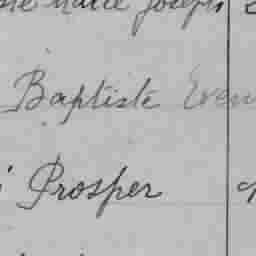 Marie Joseph
Baptiste Even
Prosper